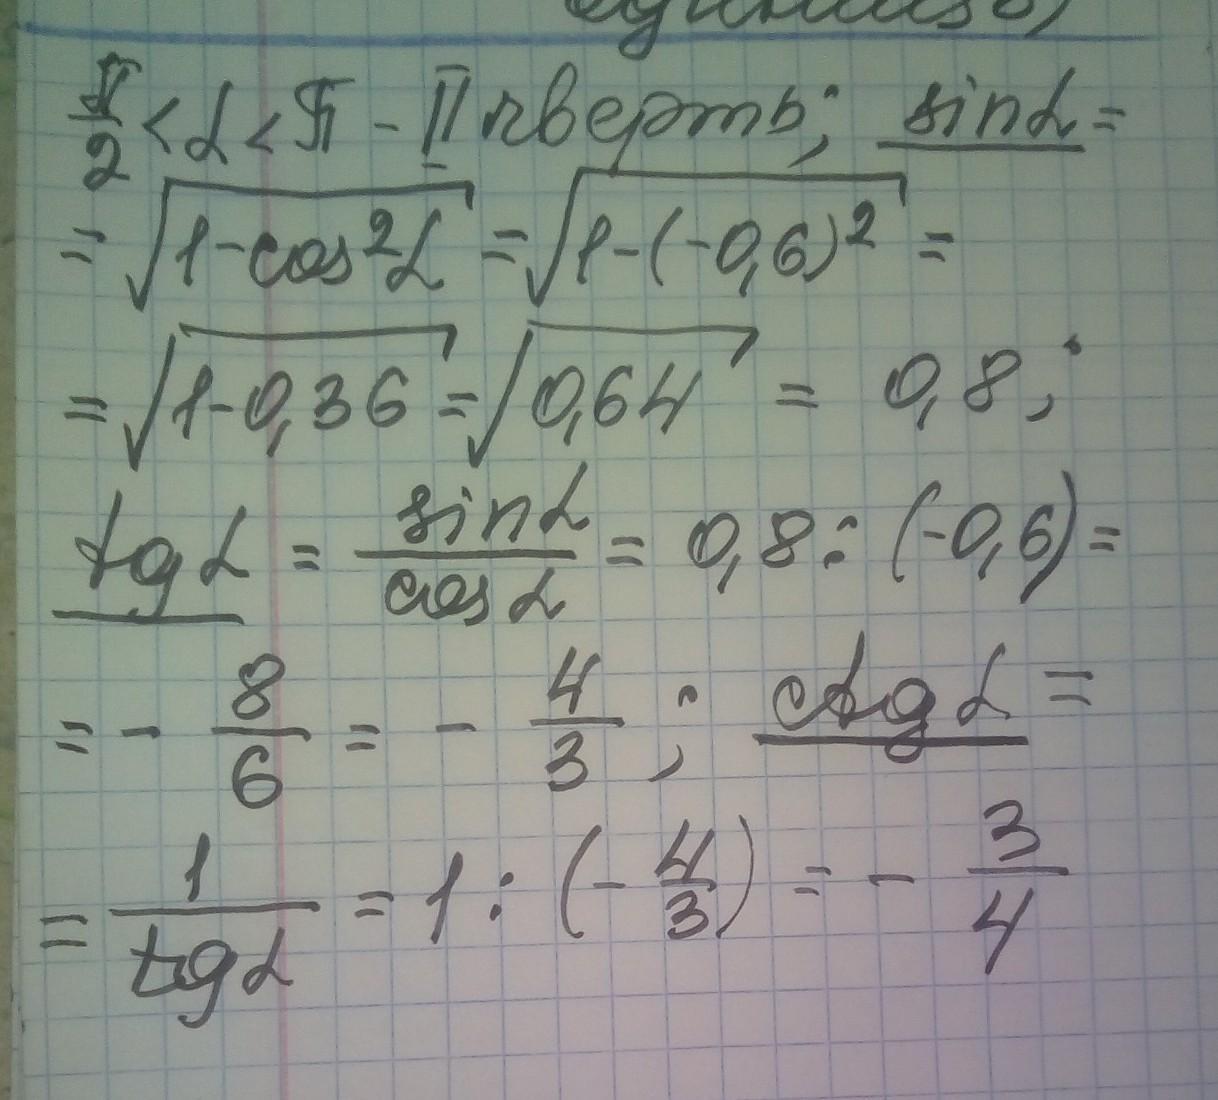 π/2 < α < π - II чверть; sinα =
= √(1-cos²α) = √(1-(-0,6)²) =
= √(1-0,36) = √(0,64) = 0,8;
tgα = sinα/cosα = 0,8 : (-0,6) =
= - 8/6 = - 4/3 ; ctgα =
= 1/tgα = 1 : (- 4/3) = - 3/4